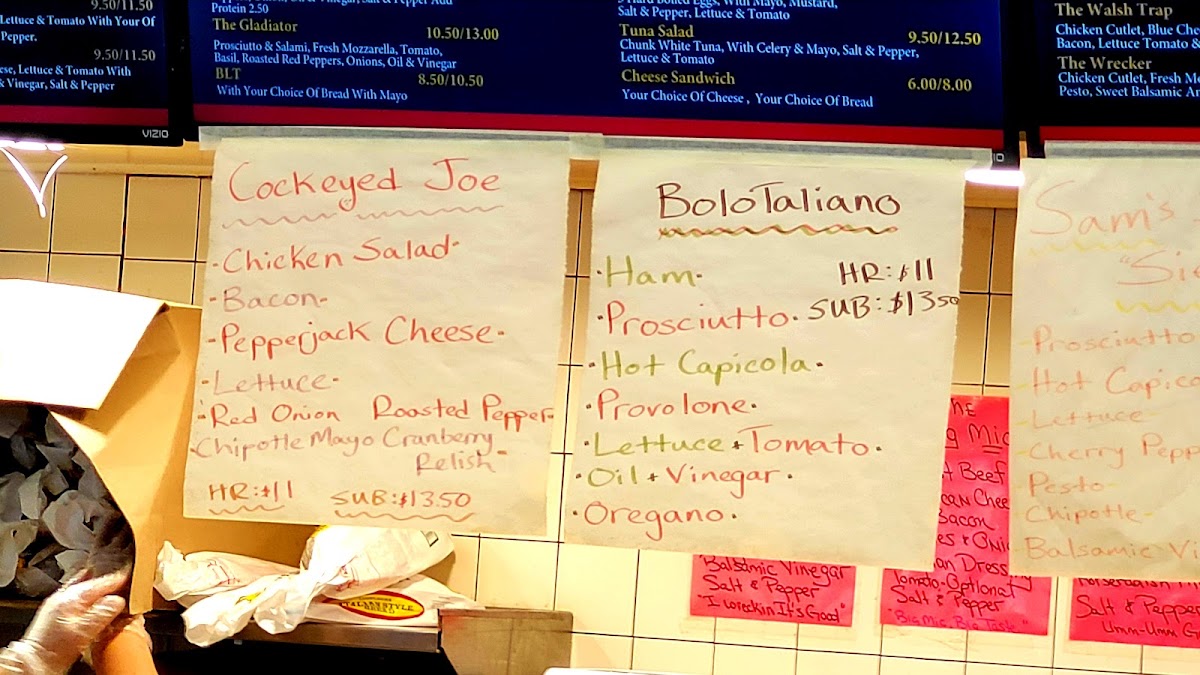 9.50/11.50
Lettuce & Tomato With Your Of
Pepper.
9.50/11.50
Lettuce & Tomato With
& Vinegar, Salt & Pepper
Protein 2.50
The Gladiator 10.50/13.00
Prosciutto & Salami, Fresh Mozzarella, Tomato,
Basil, Roasted Red Peppers, Onions, Oil & Vinegar
BLT 8.50/10.50
With Your Choice Of Bread With Mayo
VIZIO
Hard Boiled Eggs, With Mayo, Mustard,
Salt & Pepper, Lettuce & Tomato
Tuna Salad 9.50/12.50
Chunk White Tuna, With Celery & Mayo, Salt & Pepper,
Lettuce & Tomato
Cheese Sandwich 6.00/8.00
Your Choice Of Cheese , Your Choice Of Bread
The Walsh Trap
Chicken Cutlet, Blue Che
Bacon, Lettuce Tomato &
The Wrecker
Chicken Cutlet, Fresh Mo
Pesto, Sweet Balsamic An
Cockeyed Joe
·Chicken Salad·
·Bacon·
·Pepperjack Cheese·
·Lettuce·
·Red Onion Roasted Pepper·
·Chipotle Mayo Cranberry
Relish·
HR:$11 SUB:$13.50
BoloTaliano
·Ham· HR:$11
·Prosciutto· SUB:$13.50
·Hot Capicola·
·Provolone·
·Lettuce + Tomato·
·Oil + Vinegar·
·Oregano·
Sam's
Prosciutto
Hot Capico
Lettuce
Cherry Pepp
Pesto
Chipotle
Balsamic Vi
Beef
Chee
Bacon
Dress
Tomato-Optional
Salt & Pepper
"Big Mic, Big Taste"
Balsamic Vinegar
Salt & Pepper
"I wreckin It's Good"
Salt & Pepper
Umm-Umm G